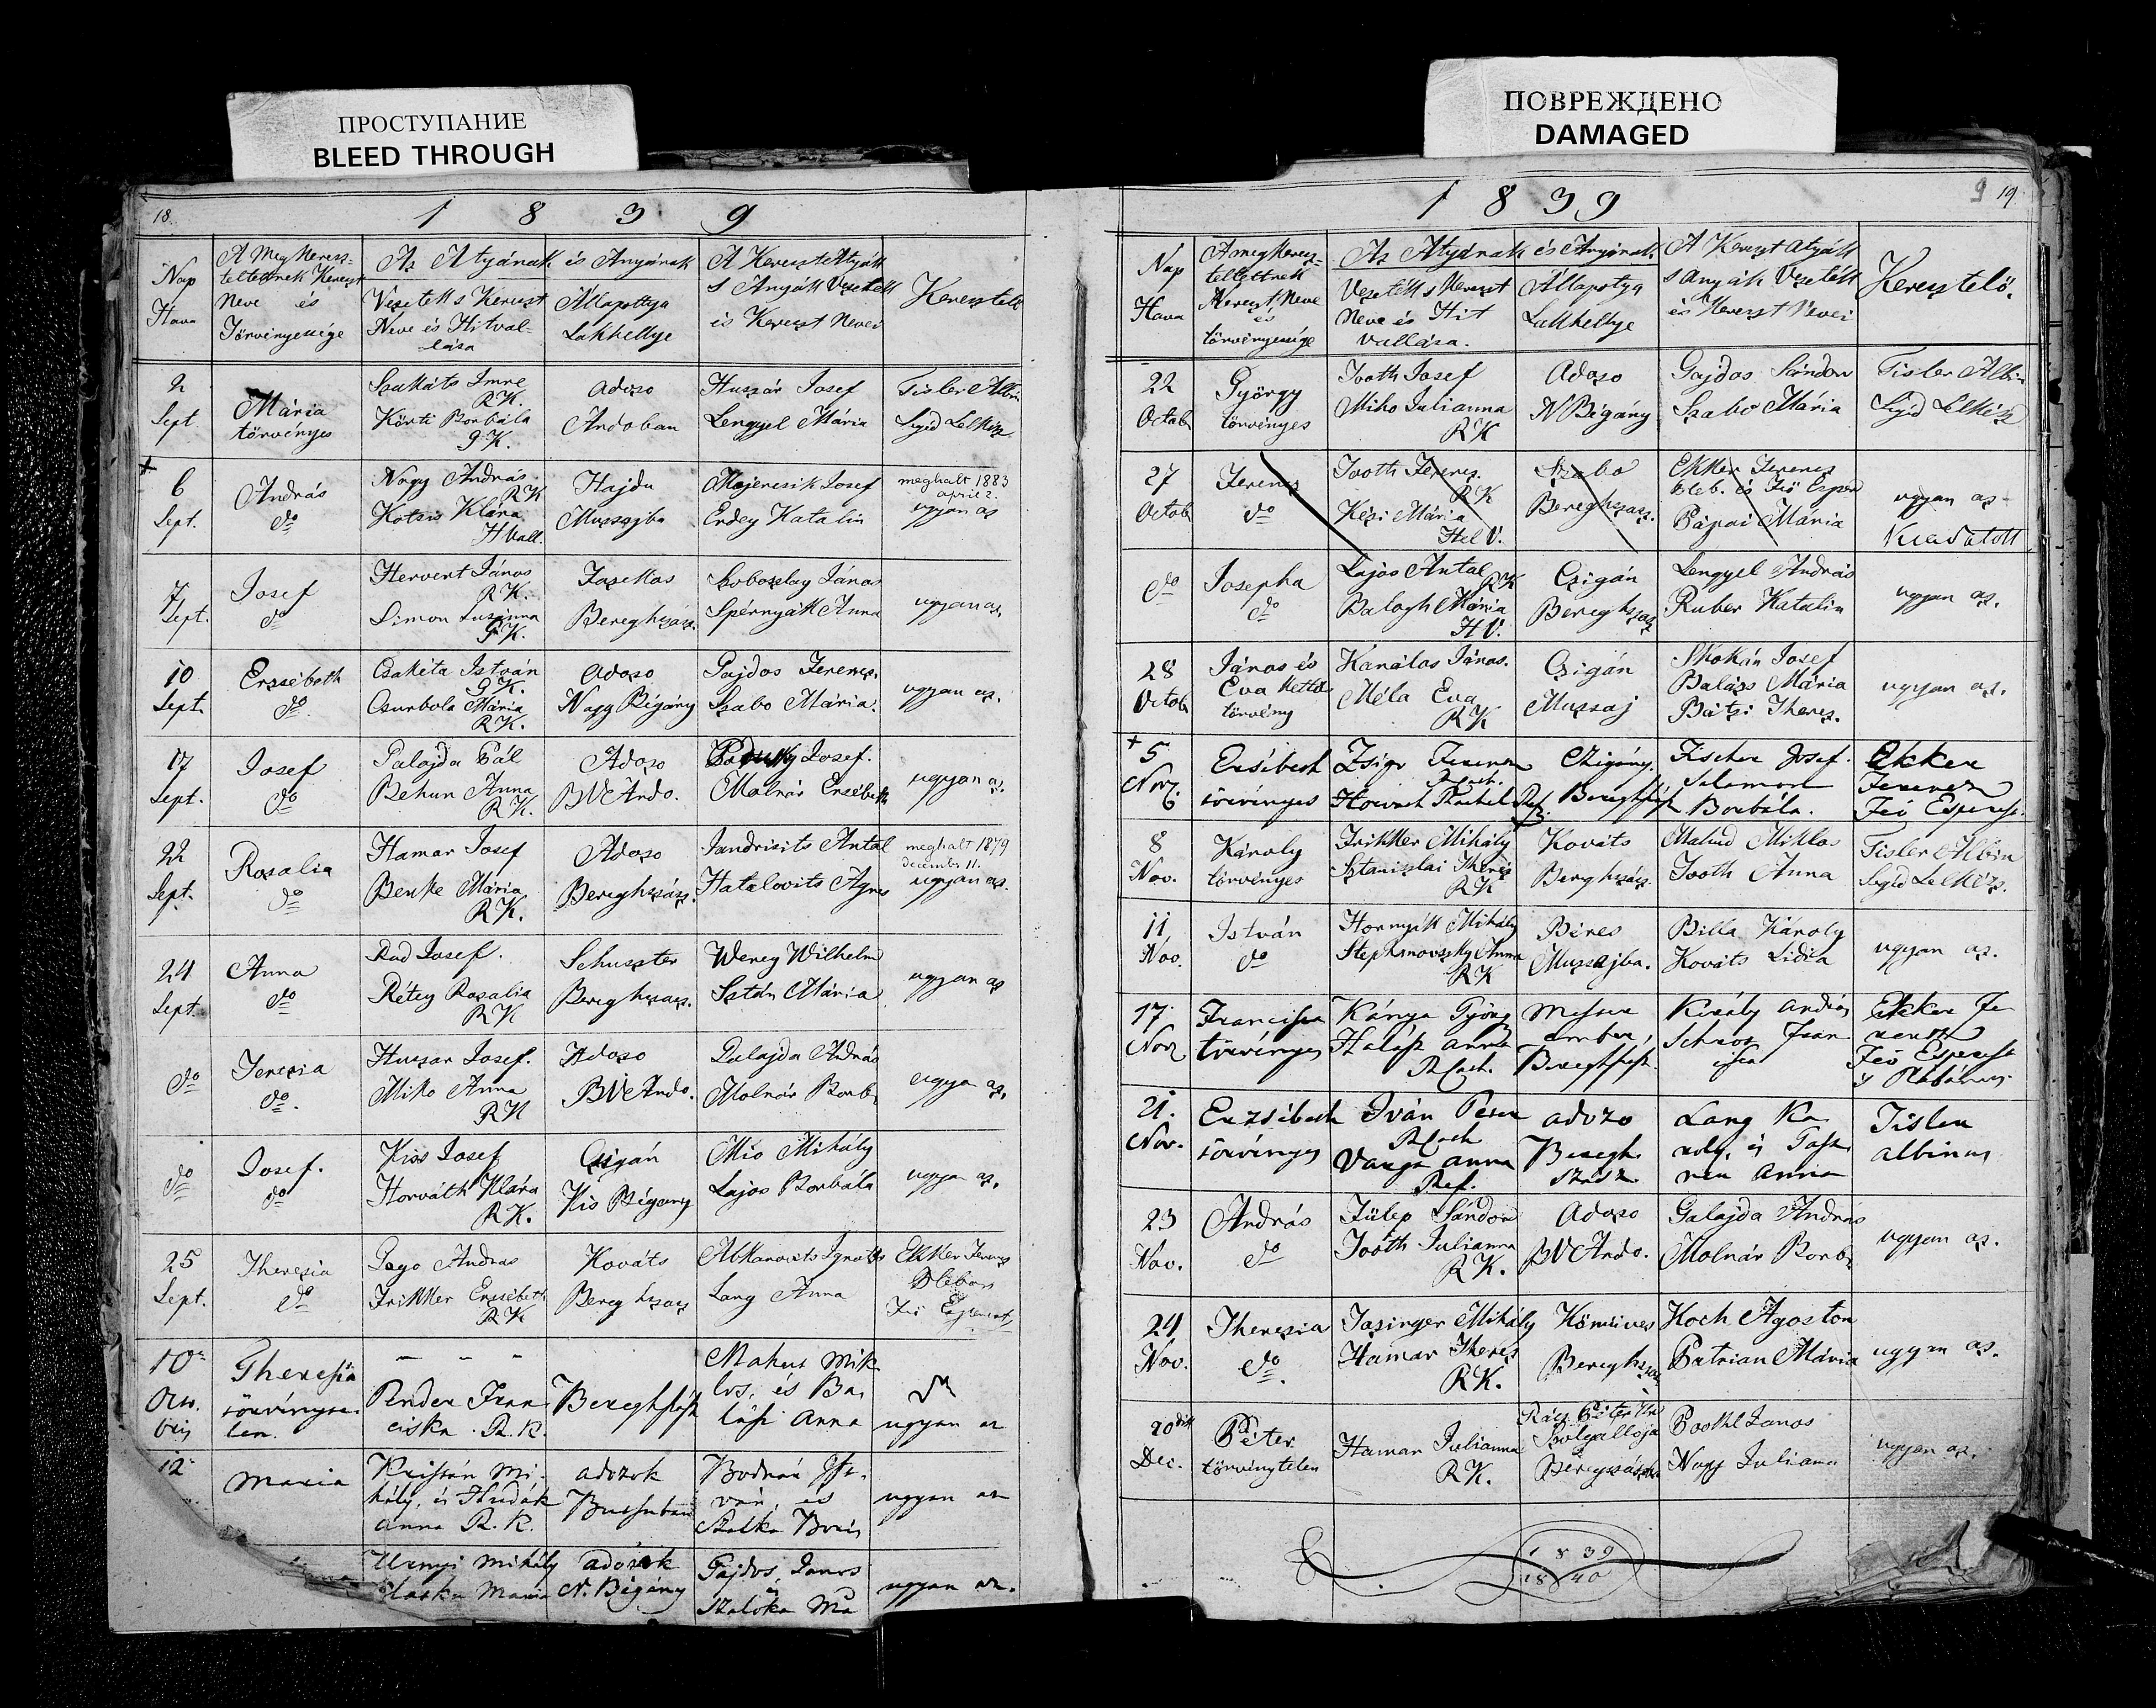 ПРОСТУПАНИЕ
BLEED THROUGH
18.
1 8 3 9
Nap
Hava
A Meg Keresz-
teltetnek Kereszt
Neve és
Törvényessége
Az Atyának és Anyának
Vezeték s Kereszt
Neve és Hitval-
lása
Állapottya
Lakhellye
A Kereszt Atyák
s Anyák Vezeték
és Kereszt Nevei
Keresztelő
2
Sept
Mária
törvényes
Szakáts Imre
R K.
Körti Borbála
G K.
Adozo
Andoban
Huszár Josef
Lengyel Mária
Tisler Albin
Segéd Lelkész
+
6
Sept.
András
do
Nagy András
R K
Kotsis Klára
H Vall.
Hajdu
Muszajba
Majercsik Josef
Erdey Katalin
meghalt 1883
april 2.
ugyan as
7
Sept.
Josef
do
Hervert János
R K.
Simon Susánna
G K.
Bereghszász.
Szoboszlay János
Spérnyák Anna
ugyan az.
10
Sept.
Erzsébeth
do
Csakéta István
G K.
Csurbola Mária
R K.
Adozo
Nagy Bégány
Gajdos Ferencz.
Szabo Mária.
ugyan az.
17
Sept.
Josef
do
Galajda Pál
Behun Anna
R K.
Adozo
BV Ardo.
Josef.
Molnár Ersébeth
ugyan az.
22
Sept.
Rosalia
do
Hamar Josef
Benke Mária
R K.
Adozo
Bereghszász.
Jandrisits Antal
Hatalovits Agnes
meghalt 1879
december 11.
ugyan as.
24
Sept.
Anna
do
Rad Josef.
Rétey Rosalia
R K
Schuszter
Bereghszász.
Werey Wilhelm
Mária
ugyan az
do
Terezia
do.
Huszar Josef.
Miko Anna
R K
Adozo
BV Ardo.
Galajda András
Molnár Borb.
ugyan az.
do
Josef.
do
Kiss Josef
Horváth Klára
R K.
Czigán
Kis Bégany
Mio Mihály
Lajos Borbála
ugyan az.
25
Sept.
Theresia
do
Gego Andras
Frikker Erzsébeth
R K
Kováts
Bereghszasz
Abkarovits Ignátz
Lang Anna
Ekker Ferencz
Plébán
Fő Esperest
10
Octo.
bris
Theresia
törvényte-
len.
- - -
Pender Fran
ciska R. K.
Bereghszász
Makus Mik
los, és Ba
lási Anna
ugyan az
12
Maria
Krissán Mi-
hály, és Hudák
Anna R. K.
adozok
Bodnár Ist-
ván és
ugyan az
Mihály
Maria
adózok
N. Bégány
Gajdos, Janos
és
Szaloka Má
ugyan az.
ПОВРЕЖДЕНО
DAMAGED
1 8 3 9
9 19.
Nap
Hava
A meg keresz-
teltettnek
Kereszt Neve
és
törvényessége
Az Atyának és Anyának
Vezeték s Kereszt
Neve és Hit
vallása.
Állapotya
Lakhellye
A Kereszt Atyák
s Anyák Vezeték
és Kereszt Nevei
Keresztelő.
22
Octob
György
törvényes
Tooth Josef
Miko Julianna
R K
Adozo
N Bégány
Gajdos Sándor
Szabo Mária
Tisler Albin
Segéd Lelkész
27
Octob
Ferencz
do
Tooth Ferencz.
R K
Kézi Mária
Hel V.
Szabo
Bereghszász.
Ekker Ferencz
Pleb. és Fő Esper
Pápai Mária
ugyan az
do
Josepha
do
Lajos Antal
R K
Balogh Mária
H V.
Czigán
Bereghszász
Lengyel András
Ruber Katalin
ugyan az.
28
Octob
János és
Eva kettős
törvény
Kanálos János.
Méla Eva
R K
Czigán
Muszaj
Skokán Josef
Balázs Mária
Bátzi Theres.
ugyan az.
+ 5
Nov.
Ersébeth
törvényes
Zsiga Ferencz
R Cath.
Horvath Rachel Ref.
Czigány.
Bereghszász
Fischer Josef.
Salamon
Borbála.
Ekker
Ferencz
Fő Esperest.
8
Nov.
Károly
törvényes
Frikker Mihály
Stanislai Theres
R K
Kováts
Bereghszász.
Miklos
Tooth Anna
Tisler Albin
Segéd Lelkész.
11
Nov.
István
do
Hornyák Mihály
Stephanovszky Anna
R K
Béres
Muszajba.
Billa Károly
Kováts Lidia
ugyan az.
17.
Nov
Francisca
törvényes
Kánya György
Halász Anna
R Cath.
ember,
Bereghszász.
Király András
Fran
ciska
Ekker Fe
rencz
Fő Esperest
21.
Nov.
Erzsébeth
törvényes
Iván Péter
R Cath
Varga Anna
Ref.
adozo
Beregh
szász.
Lang Ka
roly, és
Anna
Tisler
Albinus
23
Nov.
András
do
Fülep Sándor
Tooth Julianna
R K.
Adozo
BV Ardo.
Galajda Andras
Molnár Borb.
ugyan az.
24
Nov.
Theresia
do.
Jasinger Mihály
Hamar Theres
R K.
Kömüves
Bereghszász
Koch Agoston
Patrian Mária
ugyan az.
20dik
Dec.
Péter
törvénytelen
Hamar Julianna
R K.
Rácz Péter Ur
Szolgallója
Beregszász
Janos
Nagy Juliana
ugyan az.
1839
1840